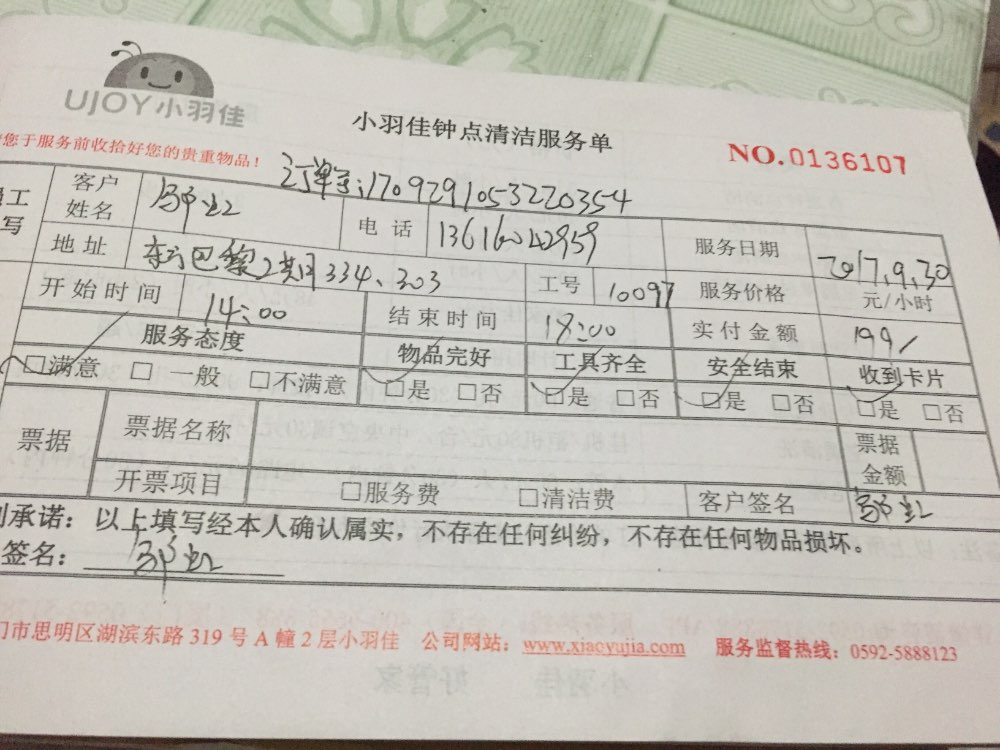 UJOY小羽佳
小羽佳钟点清洁服务单
NO.0136107
您于服务前收拾好您的贵重物品！
订单号：1709291053220354
工 客户姓名 电话 服务日期 2017.9.30
写
地址 巴黎 334、303 工号 10097 服务价格 元/小时
开始时间 14：00 结束时间 18：00 实付金额 199/
服务态度 物品完好 工具齐全 安全结束 收到卡片
□满意 □一般 □不满意 □是 □否 □是 □否 □是 □否 □是 □否
票据 票据名称 票据金额
开票项目 □服务费 □清洁费 客户签名
承诺：以上填写经本人确认属实，不存在任何纠纷，不存在任何物品损坏。
签名：
门市思明区湖滨东路 319 号 A 幢 2 层小羽佳 公司网站：www.xiaoyujia.com 服务监督热线：0592-5888123